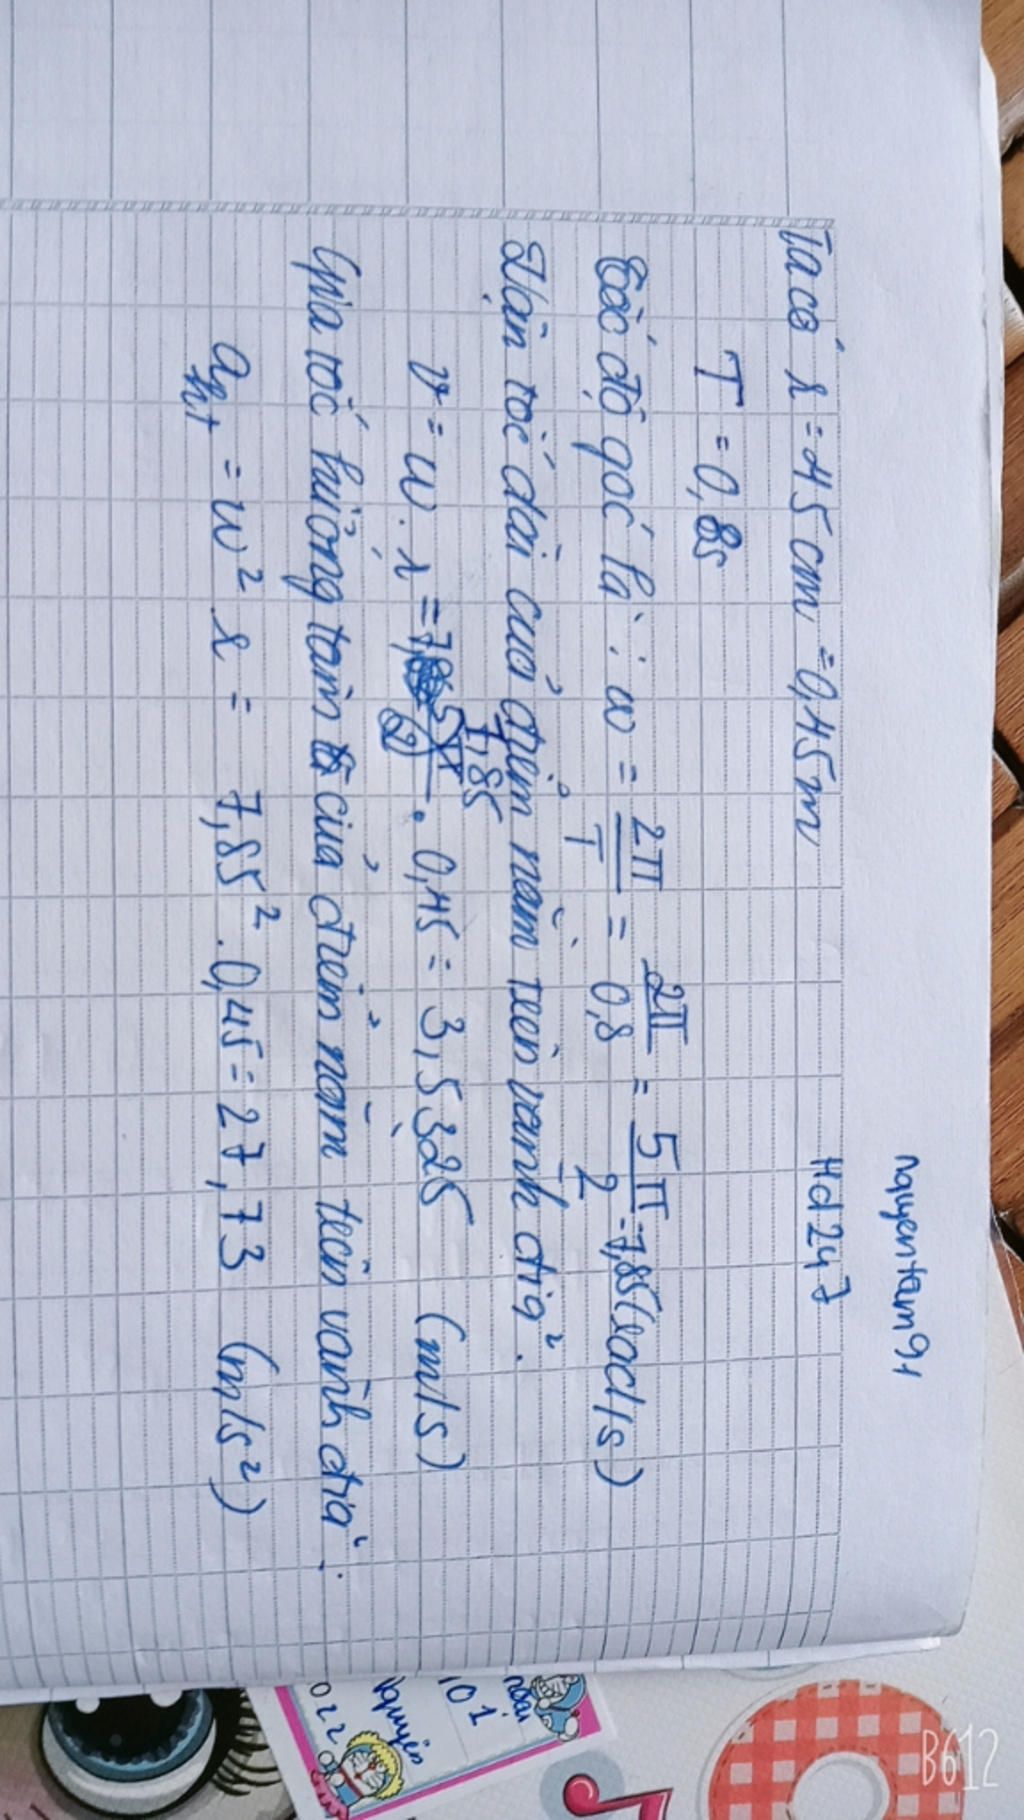 nguyentam94
Hd247
Ta có r = 45 cm = 0,45m
T = 0,8s
Tốc độ góc là : ω = 2π/T = 2π/0,8 = 5π/2 = 7,85 (rad/s)
Vận tốc dài của điểm nằm trên vành đĩa.
v = ω. r = 7,85 . 0,45 = 3,5325 (m/s)
Gia tốc hướng tâm của điểm nằm trên vành đĩa.
aht = ω² r = 7,85² . 0,45 = 27,73 (m/s²)
10 1
Nguyên
022
B612